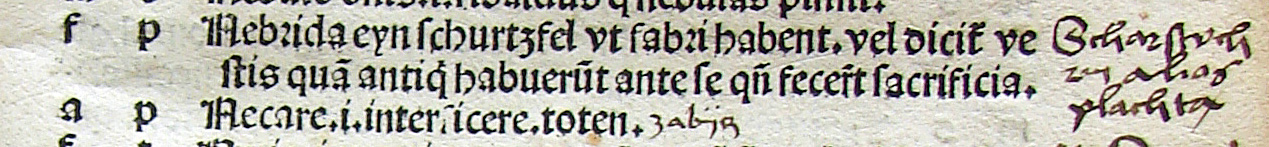 f p Nebrida eyn schurtzfel vt fabri habent. vel dicit̃ ve
stis quā antiq̇ habuerūt ante se qñ fecer̃t sacrificia.
a p Necare .i. interficere. toten. zabiją
plachta